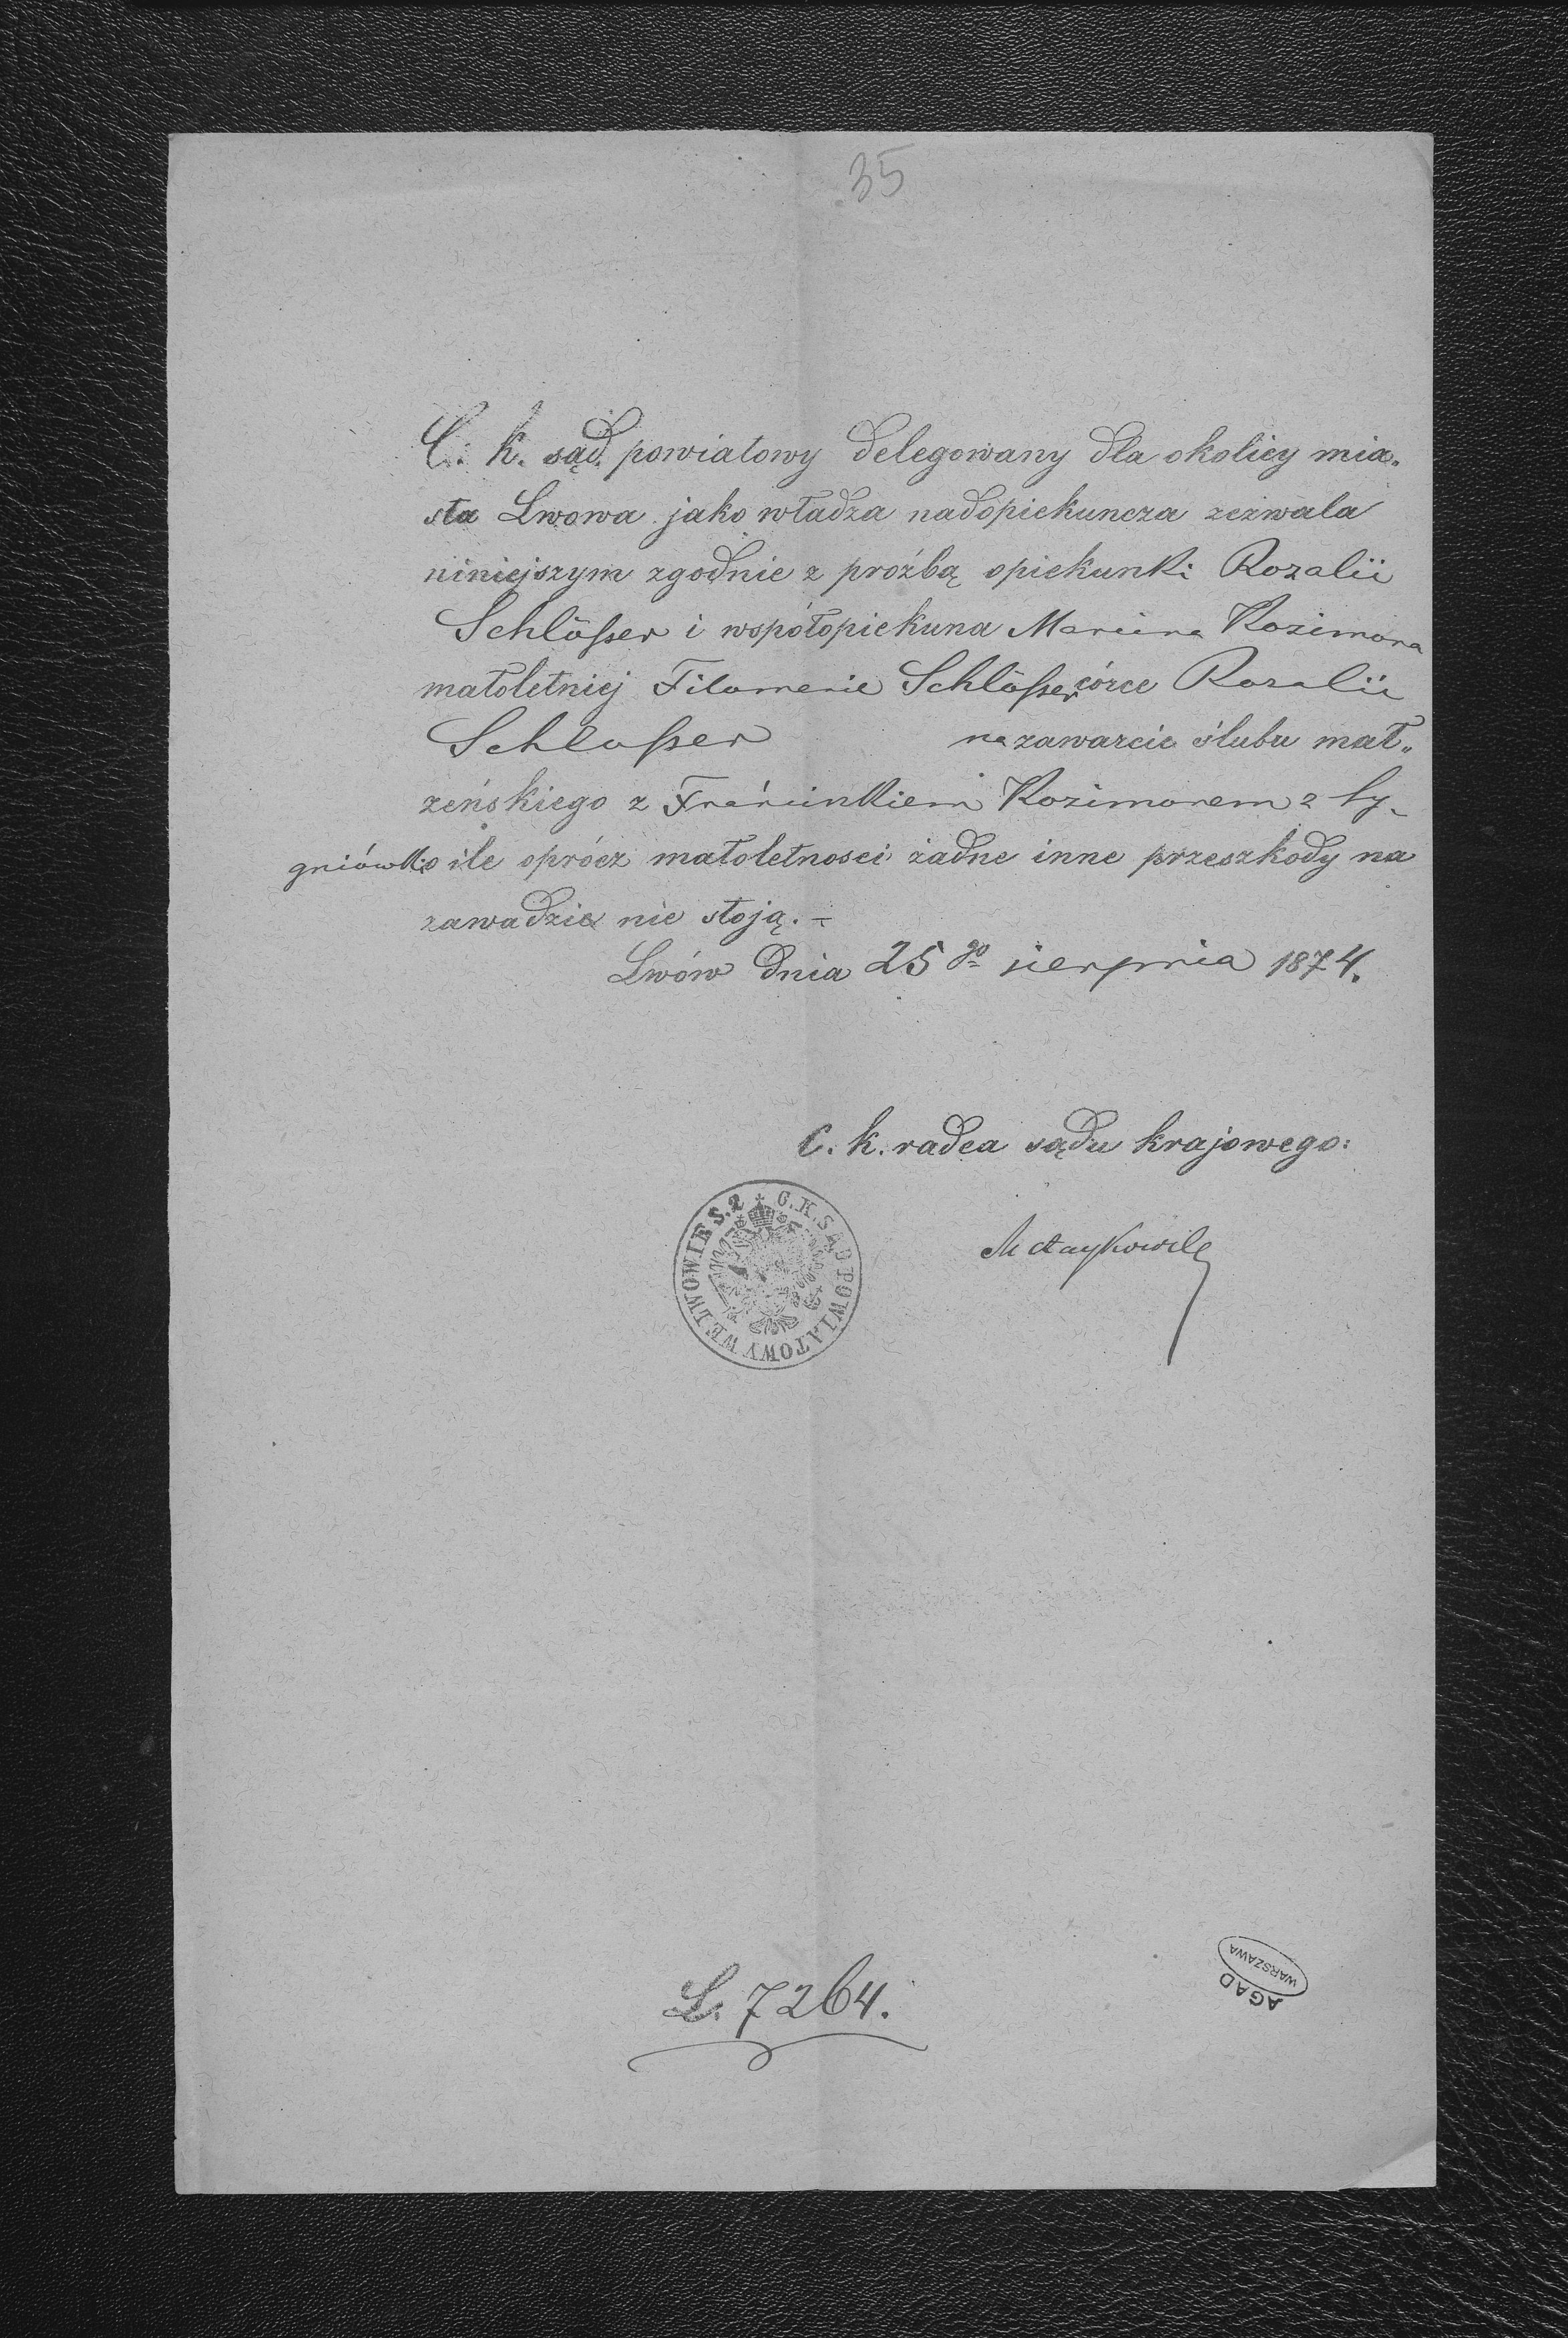 35
C. k. sąd powiatowy delegowany dla okolicy mia-
sta Lwowa jako władza nadopiekuncza zezwala
niniejszym zgodnie z proźbą opiekunki Rozalii
Schlößer i współopiekuna Marcina Kozimora
małoletniej Filomenie Schlößer córce Rozalii
Schloßer na zawarcie ślubu mał„
żeńskiego z Franciszkiem Kozimorem z Sy-
gniówki o ile oprócz małoletnosci żadne inne przeszkody na
zawadzie nie stoją.-
Lwów dnia 25go sierpnia 1874.
C. k. radca sądu krajowego:
C.K. SĄD POWIATOWY WE LWOWIE S. 2
L. 7264.
AGAD
WARSZAWA